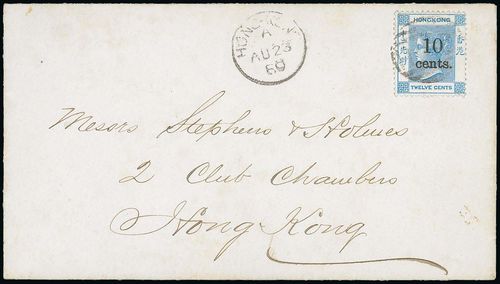 HONG KONG
A
AU 23
80
HONGKONG
10
cents.
TWELVE CENTS
Messrs Stephens & Holmes
2 Club Chambers
Hong Kong